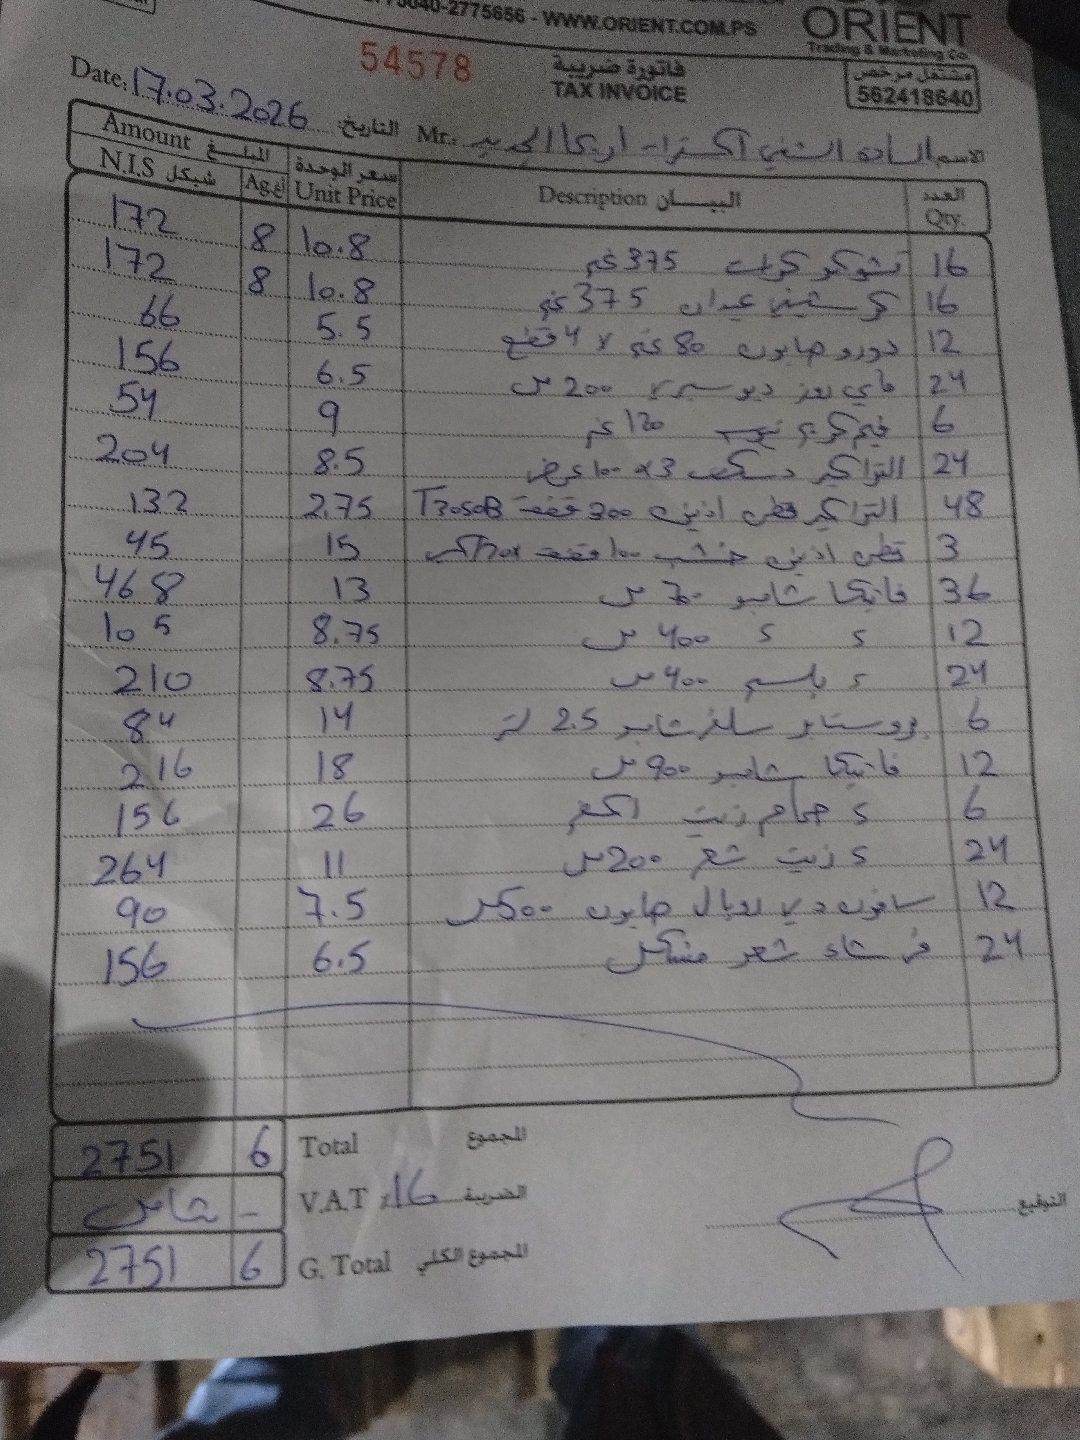 2775656 - WWW.ORIENT.COM.PS
ORIENT
Trading & Marketing Co.
54578
فاتورة ضريبة
TAX INVOICE
مشتغل مرخص
562418640
Date: 17.03.2026 التاريخ:
Mr.: السادة الشني اكسترا - اريحا الجديد الاسم:
Amount المبلغ
N.I.S شيكل Ag. أغ سعر الوحدة Unit Price Description البيـــان العدد Qty.
172 8 10.8 375 غم 16
172 8 10.8 عيدان 375 غم 16
66 5.5 دورو صابون 80 غم x 4 قطع 12
156 6.5 200 مل 24
54 9 120 غم 6
204 8.5 التراكير 24
132 2.75 التراكير قطن اذنين 300 قطعة T3050B 48
45 15 قطن اذنين خشب 100 قطعة 3
468 13 فاتيكا شامبو 700 مل 36
105 8.75 400 مل 12
210 8.75 بلسم 400 مل 24
84 14 شامبو 2.5 لتر 6
216 18 فاتيكا شامبو 900 مل 12
156 26 حمام زيت 1كغم 6
264 11 زيت شعر 200 مل 24
90 7.5 صابون 500 مل 12
156 6.5 فرشاة شعر مشكل 24
2751 6 Total المجموع
شامل - V.A.T 16% الضريبة
التوقيع
2751 6 G. Total المجموع الكلي